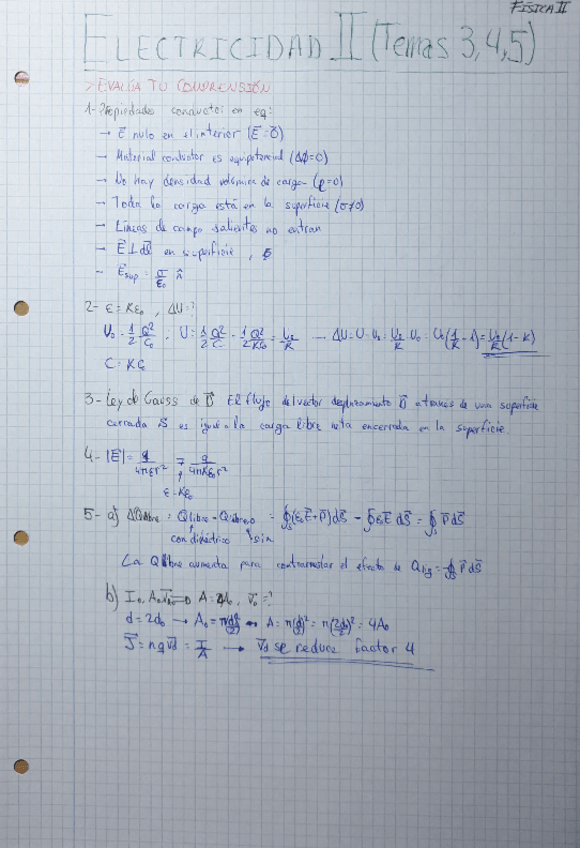 FÍSICA II
ELECTRICIDAD II (Temas 3,4,5)
> EVALÚA TU COMPRENSIÓN
1- Propiedades conductor en eq:
→ E⃗ nulo en el interior (E⃗ = 0⃗)
→ Material conductor es equipotencial (Δϕ=0)
→ No hay densidad volúmica de carga (ρ=0)
→ Toda la carga está en la superficie (σ≠0)
→ Líneas de campo salientes no entran
→ E⃗ ⊥ dS⃗ en superficie,
- E⃗sup = σ/ε₀ n̂
2- ε = Kε₀, ΔU=?
U₀ = 1/2 Q²/C₀, U = 1/2 Q²/C = 1/2 Q²/KC₀ = U₀/K → ΔU = U - U₀ = U₀/K - U₀ = U₀(1/K - 1) = U₀/K (1-K)
C = KC₀
3- Ley de Gauss de D⃗ El flujo del vector desplazamiento D⃗ a través de una superficie
cerrada S es igual a la carga libre neta encerrada en la superficie.
4- |E⃗| = q/4πεr² = q/4πKε₀r²
ε = Kε₀
5- a) ΔQlibre = Qlibre - Qlibre,0 = ∮(ε₀E⃗+P⃗)dS⃗ - ∮ε₀E⃗ dS⃗ = ∮ P⃗ dS⃗
con dieléctrico sin
La Qlibre aumenta para contrarrestar el efecto de Qlig = -∮ P⃗ dS⃗
b) I₀, A₀, => A = 4A₀, v⃗₀ = ?
d = 2d₀ → A₀ = π(d₀/2)² A = π(d/2)² = π(2d₀/2)² = 4A₀
J⃗ = nqv⃗d = I/A → v⃗d se reduce factor 4